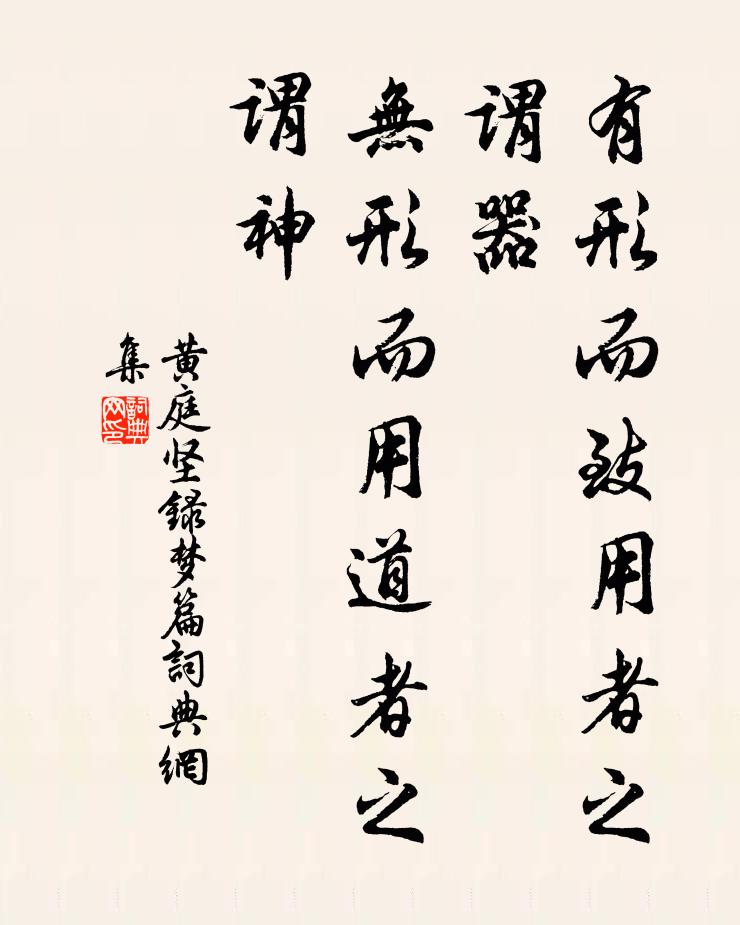 有形而致用者之
謂器
無形而用道者之
謂神
黄庭坚録梦篇詞典網
集
詞典
网印